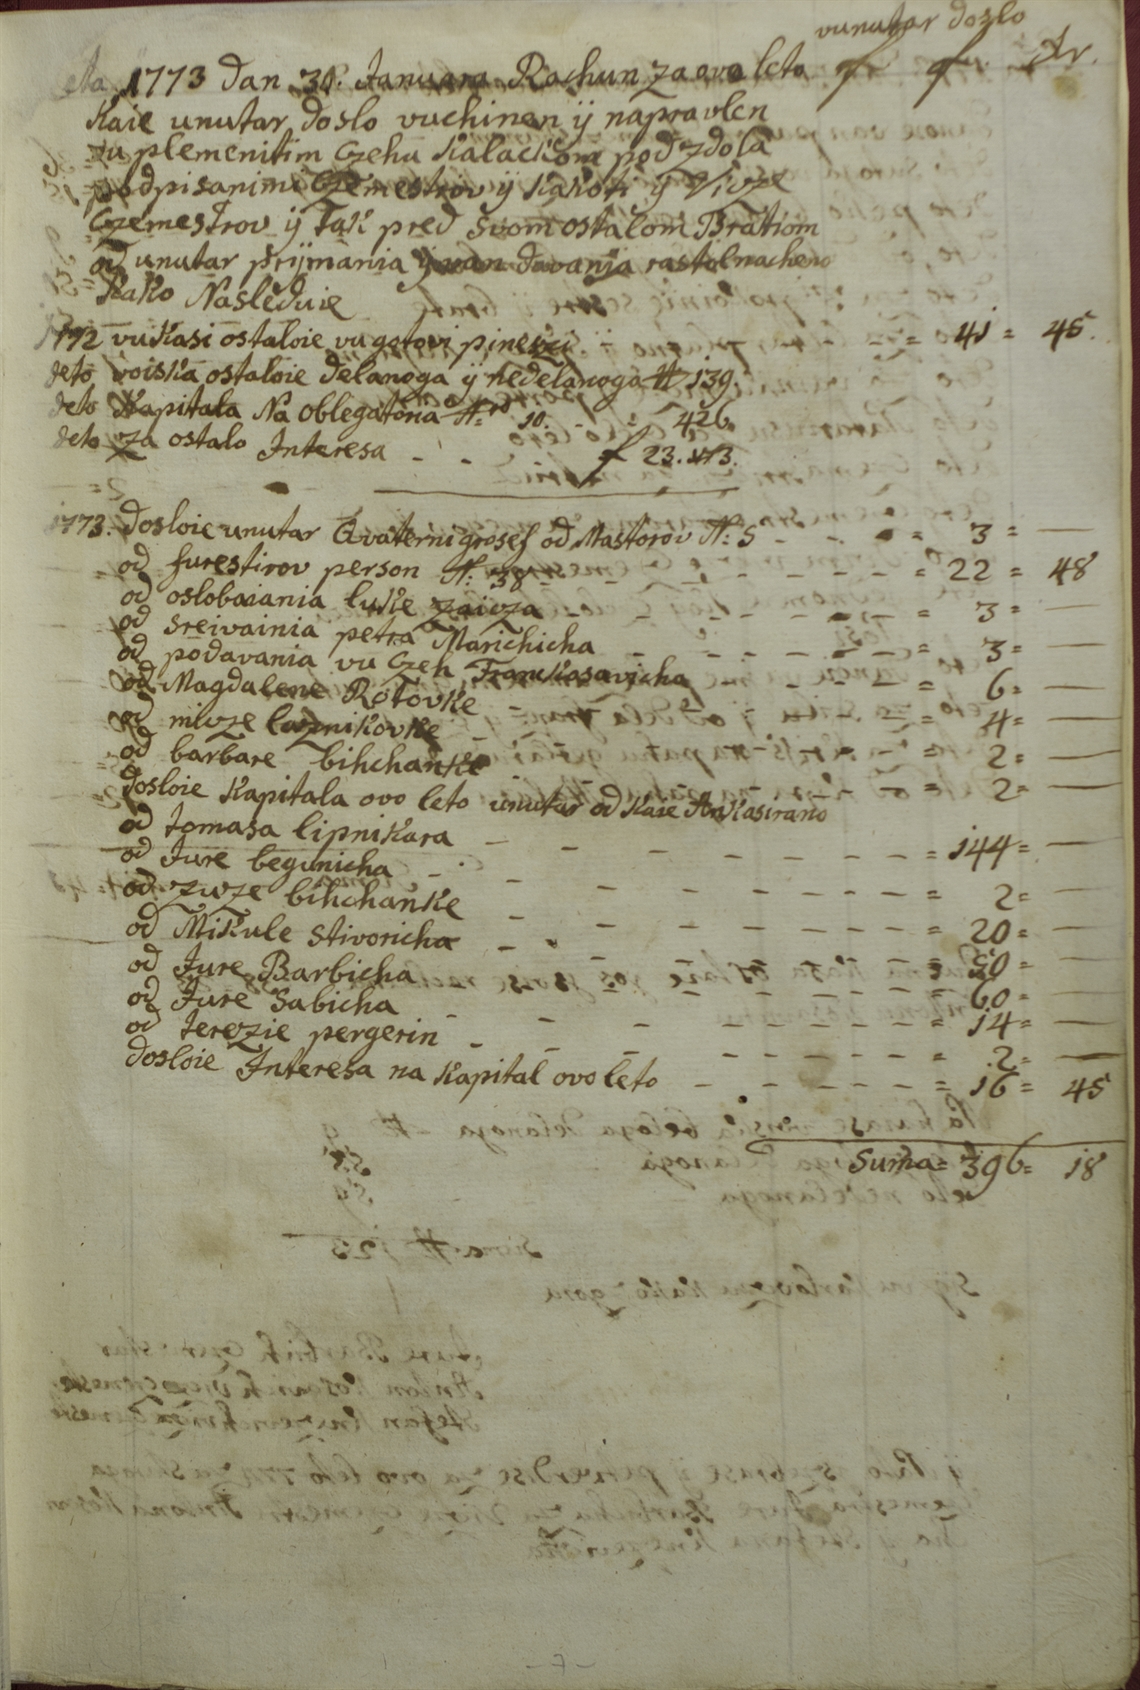 vunutar doslo
1773 dan 30. Januara Rachun za ovo leto f f xr.
Kaie unutar doslo vuchinen ij napravlen
vu plemenitim Czehu Kalackom pod zdola
podpisanimi Czemestrov ij Kakoti ij Vicze
Czemestrov ij Tak pred svom ostalom Bratiom
od unutar prijmania ij van davania rastolmacheno
Kako Nasleduie
1772 vu Kasi ostaloie vu gotovi pinezi - - = 41 = 45.
deto voiska ostaloie delanoga ij nedelanoga ℔ 139.
deto Kapitala Na oblegatoria No 10. - - 426
deto za ostalo Interesa - - f 23. 43.
1773. dosloie unutar Quaterni grosef od Mastorov N: 5 - - = 3 =
od furestirov person N: 38 - - - - - = 22 = 48
od oslobaiania luke zaicza - - - = 3 = —
od sreivainia petra Marichicha - - - - = 3 = —
od podavania vu Czeh Frank Kasavicha - - - = 6 = —
od Magdalene Rotovke - - - = 4 = —
od micze laznikovke - - - = 2 = —
od barbare bihchanke - - - = 2 = —
dosloie Kapitala ovo leto unutar od Kaie Ankasirano
od tomasa lipnikara - - - - - - - = 144 = —
od Jure begunicha - - - - - - - = 2 = —
od zuze bihchanke - - - - - - - = 20 = —
od Mikule Stivoricha - - - - - - = 50 = —
od Jure Barbicha - - - - - - = 60 = —
od Jure Sabicha - - - - - - - = 14 = —
od terezie pergerin - - - - - - - = 2 = —
dosloie Interesa na Kapital ovo leto - - - - - = 16 = 45
Suma = 396 = 18
- 7 -